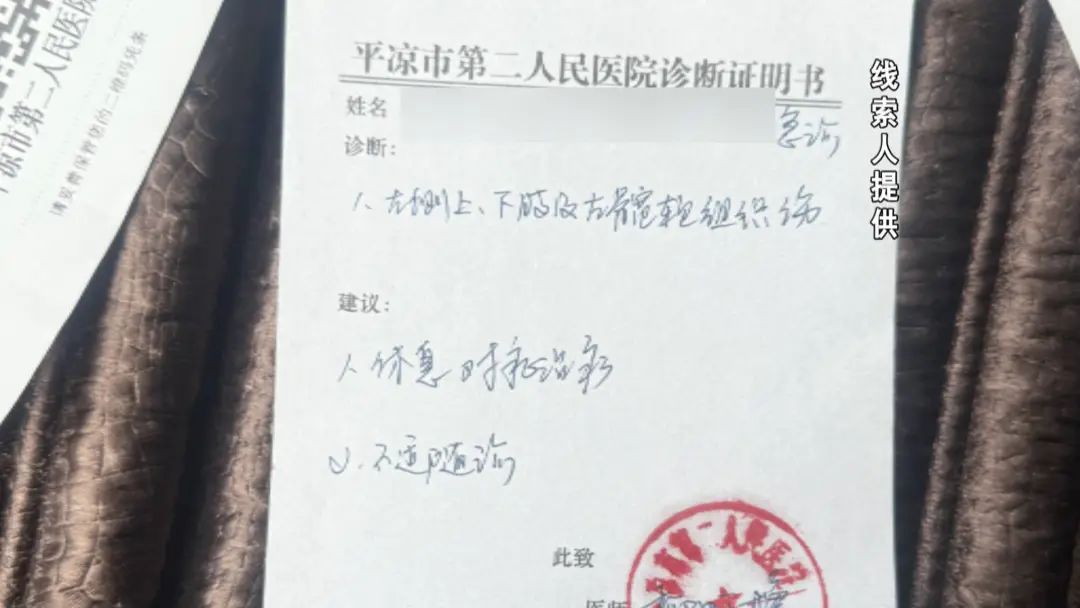 平凉市第二人民医院诊断证明书
姓名
急诊
诊断：
1、左侧上、下肢及左髋软组织伤
建议：
1、休息 对症治疗
2、不适随诊
此致
医师
线索人提供
平凉市第二人民医院
请妥善保管您的二维码凭条